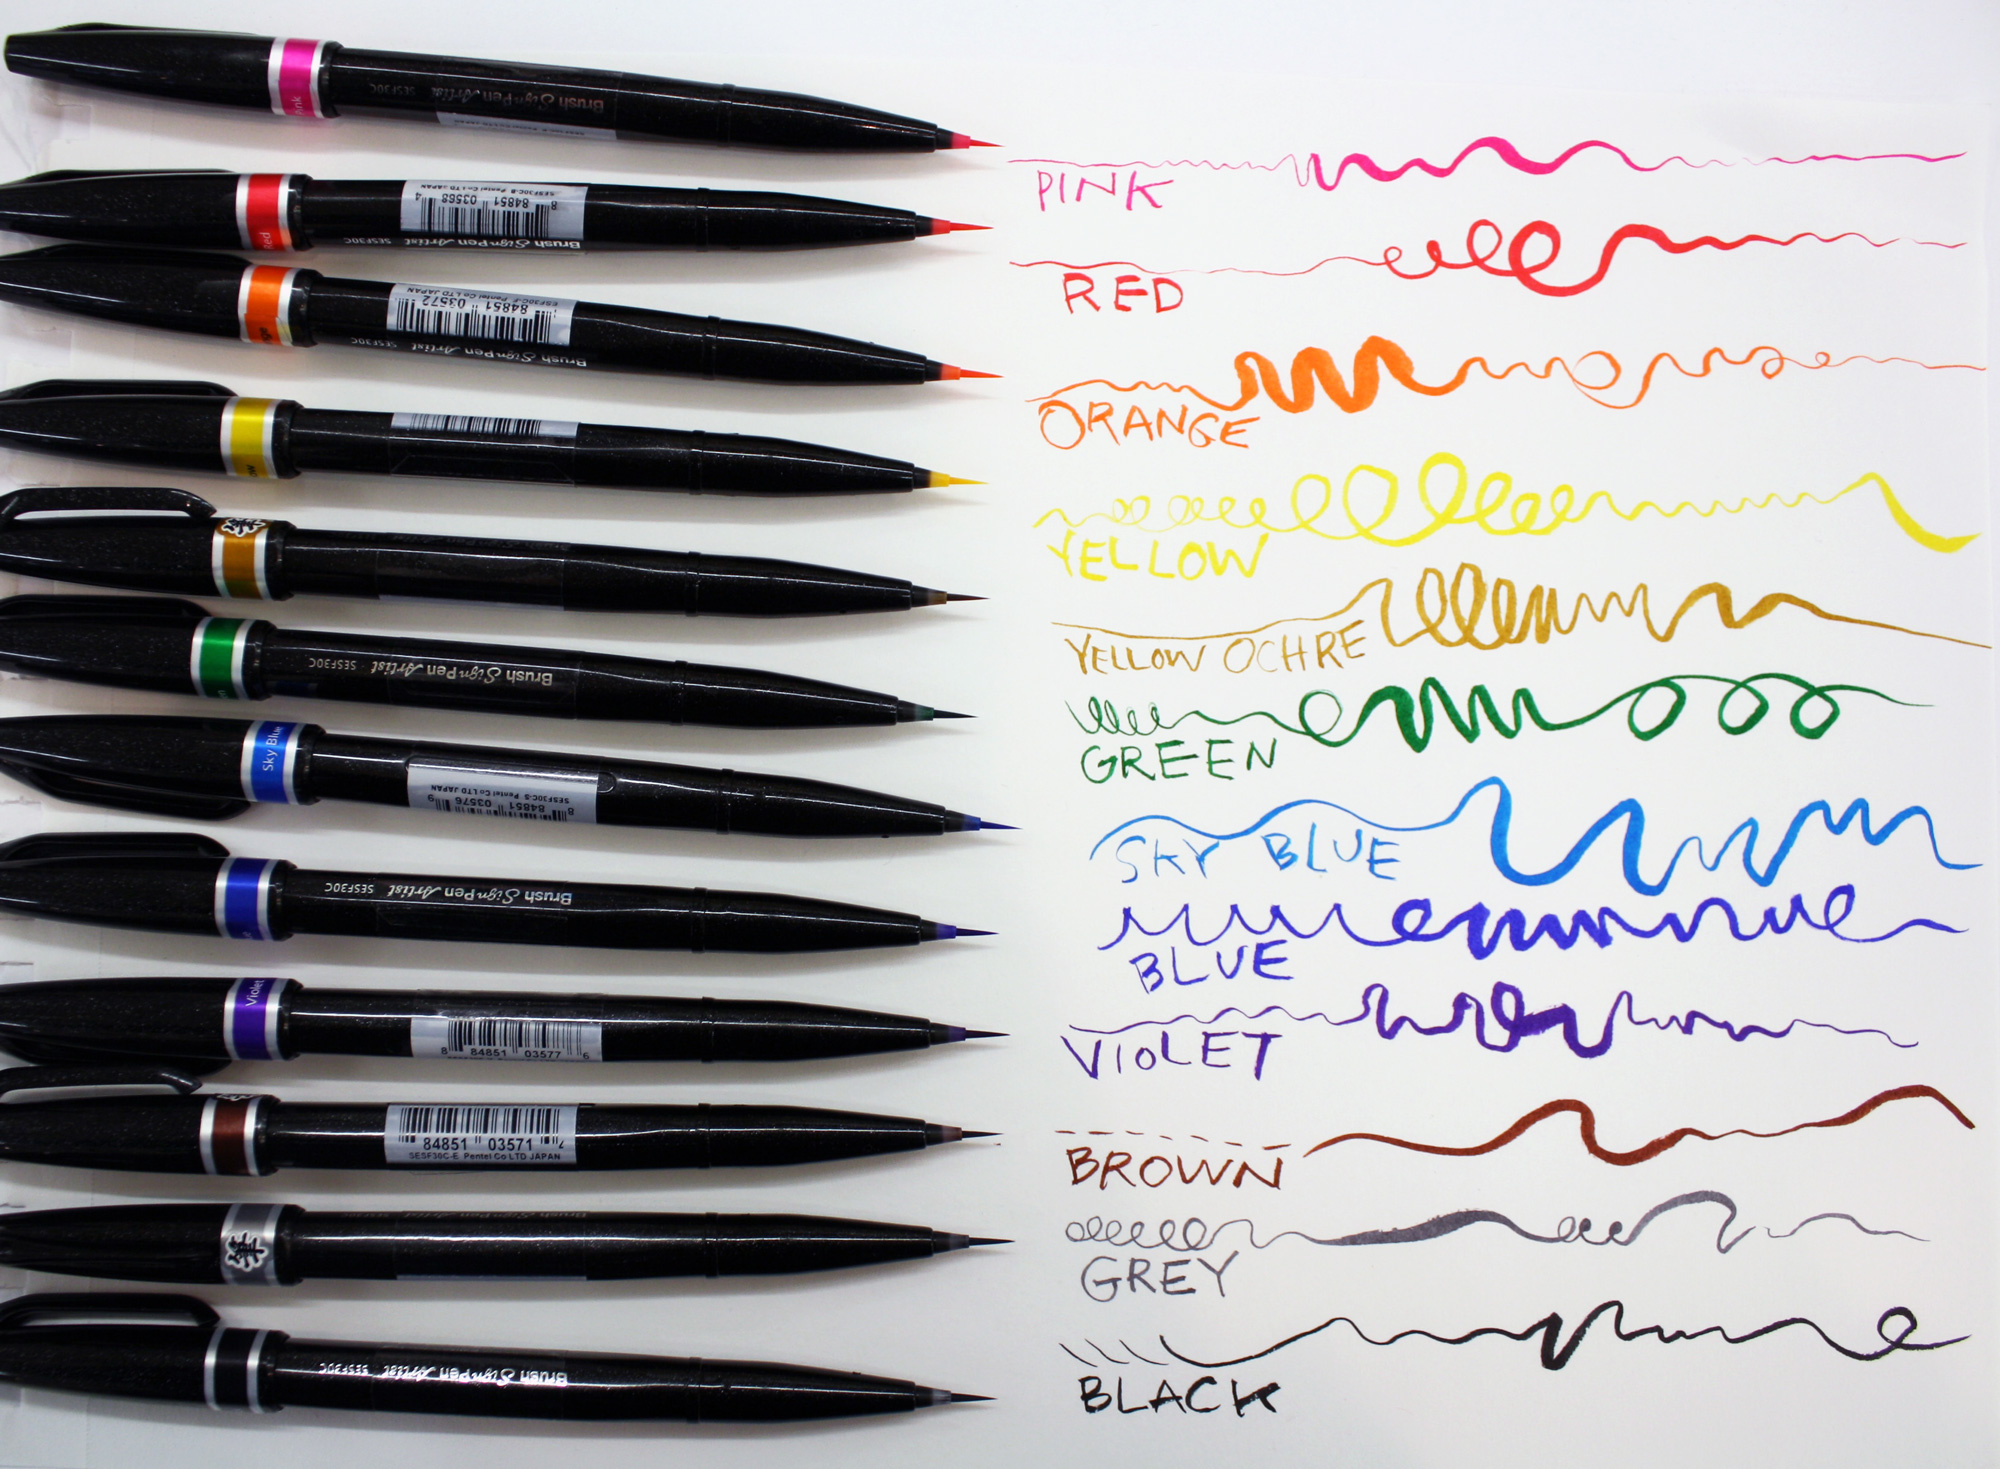 Brush Sign Pen Artist SESF30C
PINK
SESF30C-B Pentel Co LTD JAPAN
8 84851 03568 4
Red
Brush Sign Pen Artist SESF30C
RED
SESF30C-F Pentel Co LTD JAPAN
84851 03572
Brush Sign Pen Artist SESF30C
ORANGE
YELLOW
YELLOW OCHRE
Brush Sign Pen Artist SESF30C
GREEN
Sky Blue
SESF30C-S Pentel Co LTD JAPAN
8 84851 03576 9
SKY BLUE
Brush Sign Pen Artist SESF30C
BLUE
Violet
8 84851 03577 6
VIOLET
84851 03571 7
SESF30C-E Pentel Co LTD JAPAN
BROWN
Brush Sign Pen Artist
GREY
Brush Sign Pen Artist SESF30C
BLACK